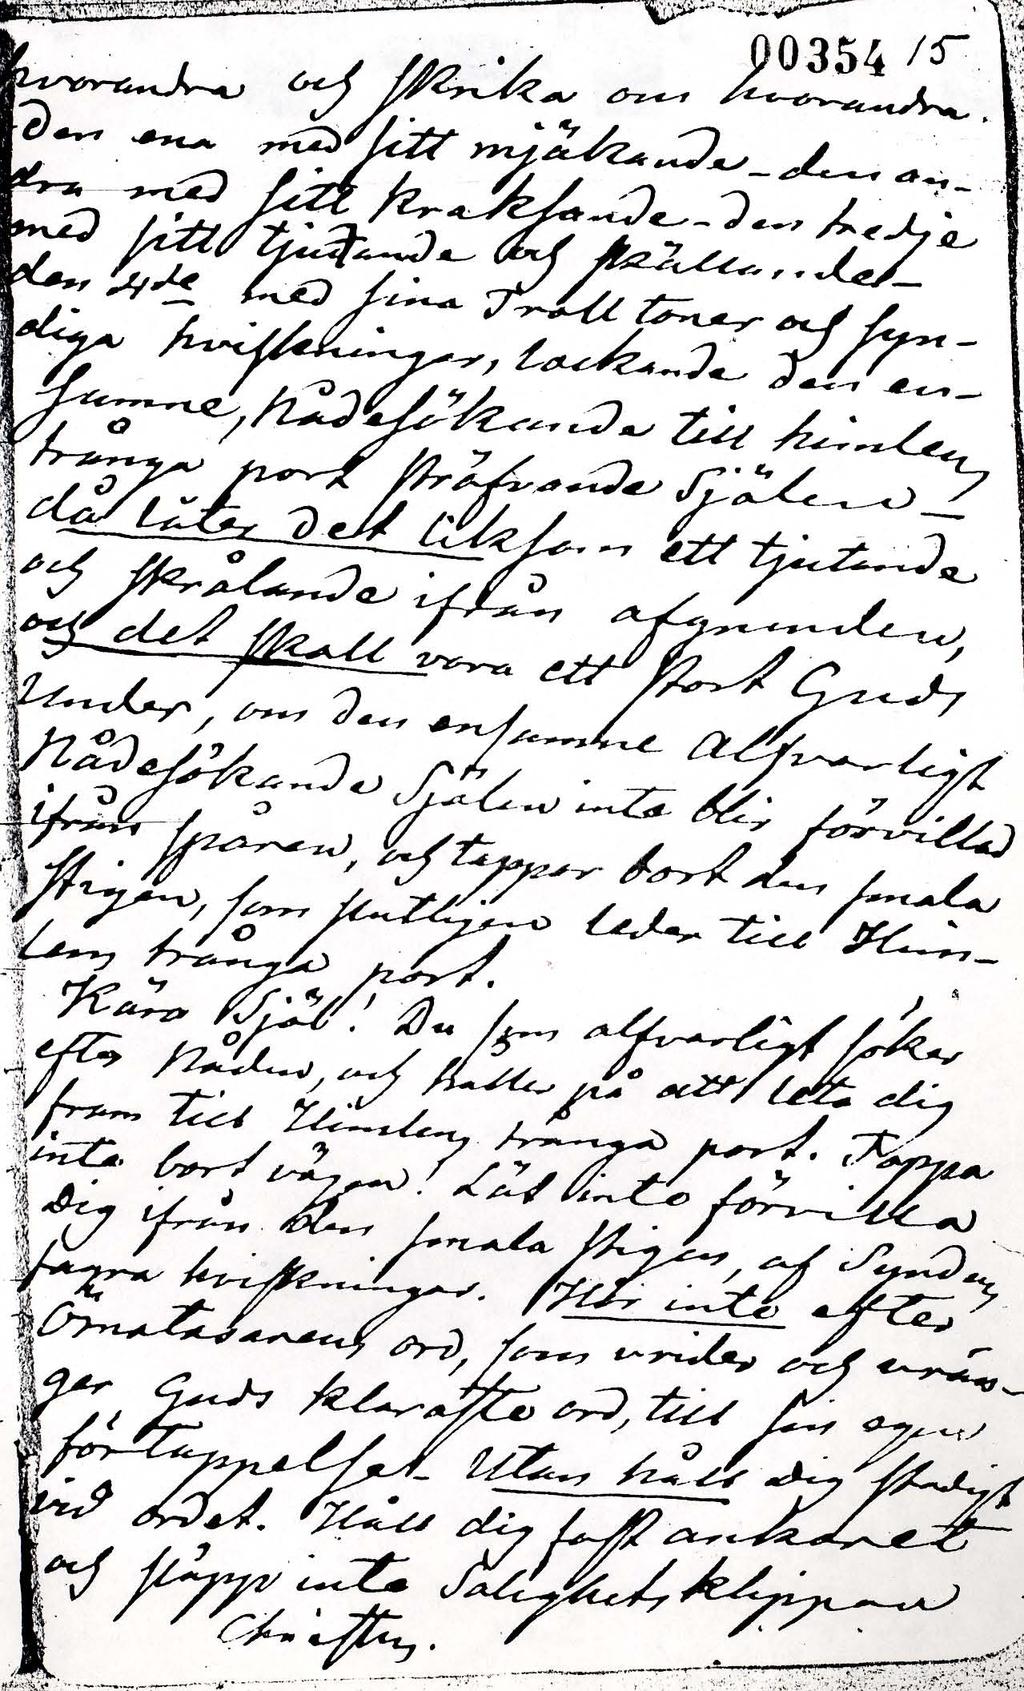 00354 15
hvorandra och skrika om hvorandra.
Den ena med sitt mjäkande – den an-
dra med sitt kraksande – den tredje
med sitt tjutande och skällande –
den 4de med sina Troll toner och syn-
diga hviskningar, lockande den en-
samne, Nådesökande till himlens
trånga port sträfvande Själen –
då låter det liksom ett tjutande
och skrålande ifrån afgrunden,
och det skall vara ett stort Guds
Under, om den ensamne Alfvarligt
Nådesökande Själen inte blir förvillad
ifrån spåren, och tappar bort den smala
stigen, som slutligen leder till Him-
lens trånga port.
Kära Själ! Du som alfvarligt söker
efter Nåden, och håller på att leta dig
fram till Himlens trånga port. Tappa
inte bort vägen! Låt inte förvilla
Dig ifrån den smala stigen, af Syndens
fagra hviskningar. Hör inte efter
ord, som vrider och vrän-
ger Guds klaraste ord, till sin egen
förtappelse – Utan håll Dig stadigt
vid ordet. Håll dig fast ankaret
och släpp inte Salighets klippan
Christus.